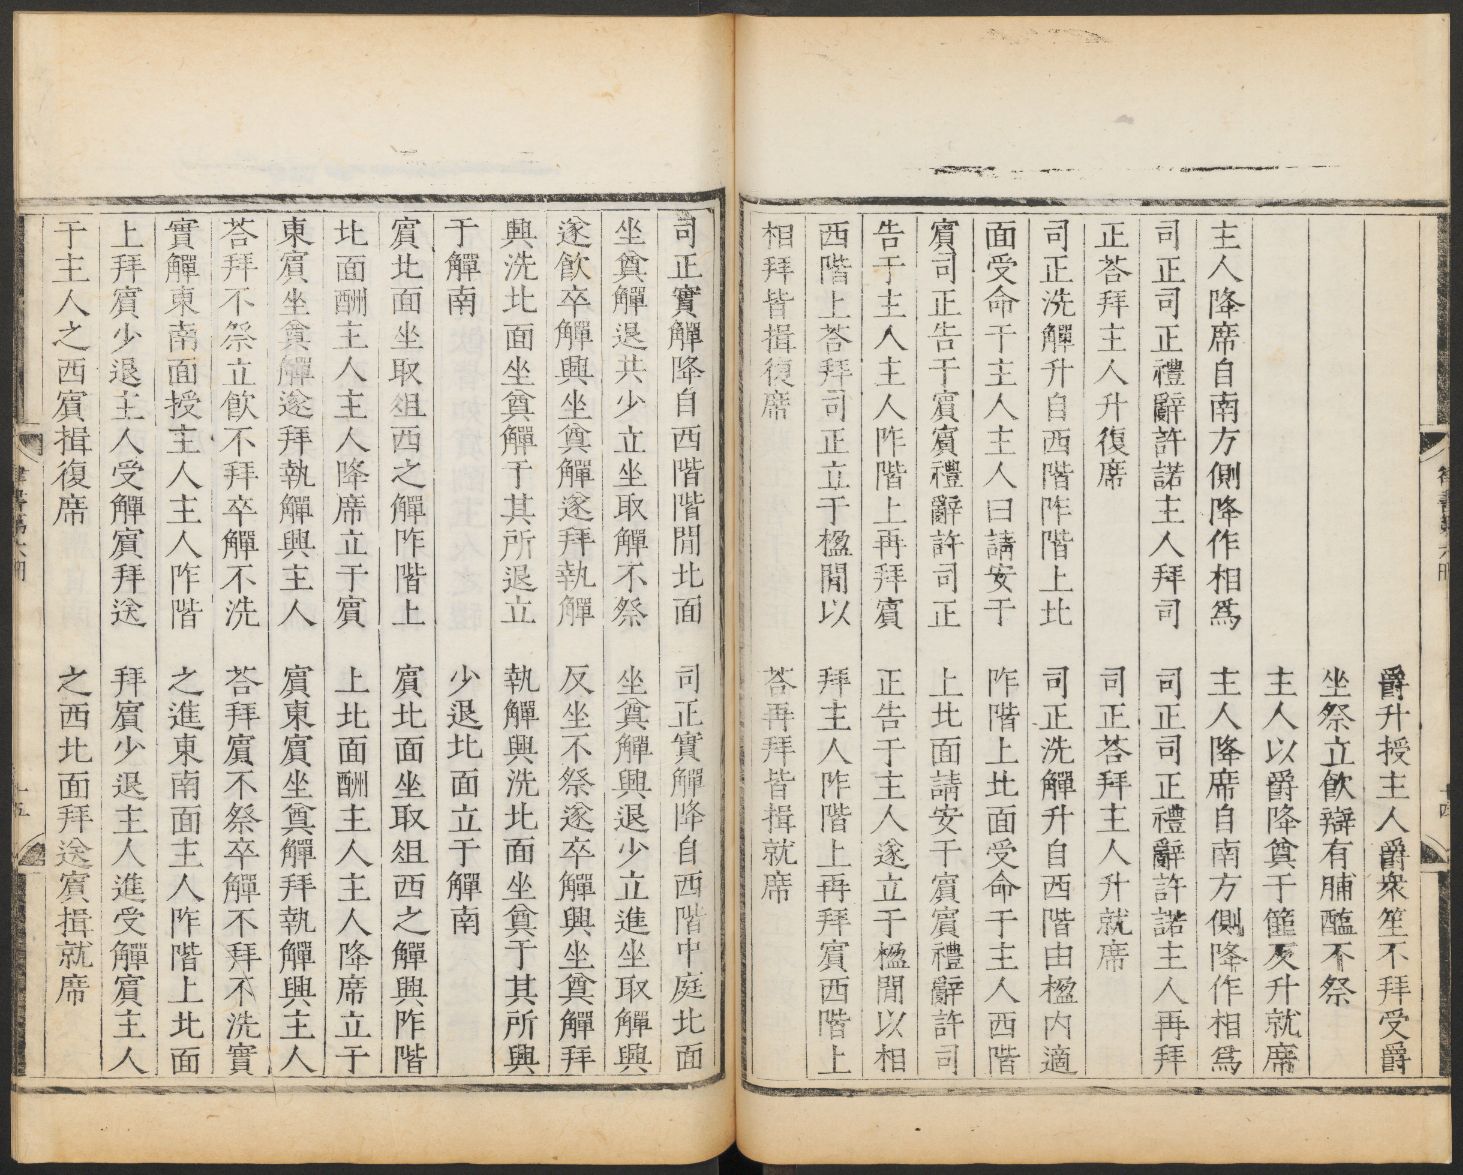 主人降席自南方側降作相爲
司正司正禮辭許諾主人拜司
正荅拜主人升復席
司正洗觶升自西階阼階上北
面受命于主人主人曰請安于
賓司正告于賓賓禮辭許司正
告于主人主人阼階上再拜賓
西階上荅拜司正立于楹閒以
相拜皆揖復席
爵升授主人爵衆笙不拜受爵
坐祭立飲辯有脯醢不祭
主人以爵降奠于篚反升就席
主人降席自南方側降作相爲
司正司正禮辭許諾主人再拜
司正荅拜主人升就席
司正洗觶升自西階由楹内適
阼階上北面受命于主人西階
上北面請安于賓賓禮辭許司
正告于主人遂立于楹閒以相
拜主人阼階上再拜賓西階上
荅再拜皆揖就席
司正實觶降自西階階閒北面
坐奠觶退共少立坐取觶不祭
遂飲卒觶興坐奠觶遂拜執觶
興洗北面坐奠觶于其所退立
于觶南
賓北面坐取俎西之觶阼階上
北面酬主人主人降席立于賓
東賓坐奠觶遂拜執觶興主人
荅拜不祭立飲不拜卒觶不洗
實觶東南面授主人主人阼階
上拜賓少退主人受觶賓拜送
于主人之西賓揖復席
司正實觶降自西階中庭北面
坐奠觶興退少立進坐取觶興
反坐不祭遂卒觶興坐奠觶拜
執觶興洗北面坐奠于其所興
少退北面立于觶南
賓北面坐取俎西之觶興阼階
上北面酬主人主人降席立于
賓東賓坐奠觶拜執觶興主人
荅拜賓不祭卒觶不拜不洗實
之進東南面主人阼階上北面
拜賓少退主人進受觶賓主人
之西北面拜送賓揖就席